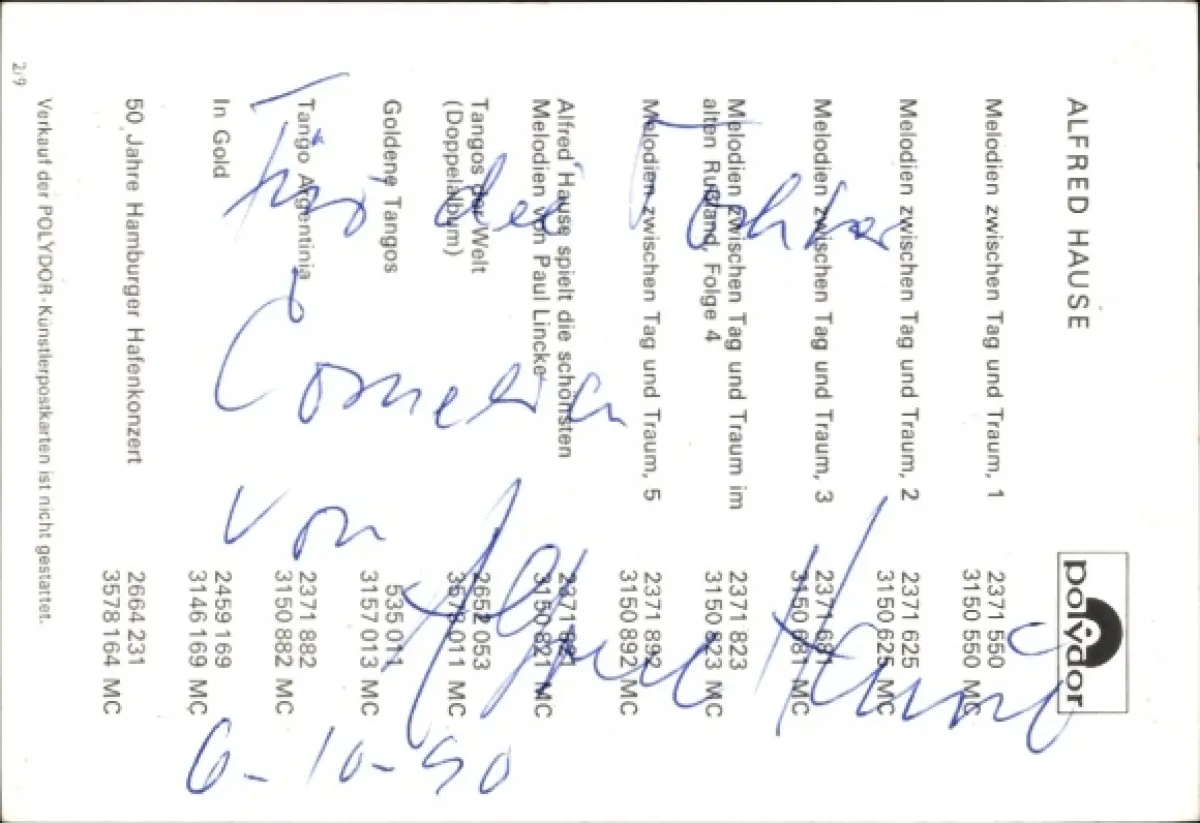 ALFRED HAUSE
polydor
Melodien zwischen Tag und Traum, 1
2371 550
3150 550 MC
Melodien zwischen Tag und Traum, 2
2371 625
3150 625 MC
Melodien zwischen Tag und Traum, 3
2371 681
3150 681 MC
Melodien zwischen Tag und Traum im
alten Rußland, Folge 4
2371 823
3150 823 MC
Melodien zwischen Tag und Traum, 5
2371 892
3150 892 MC
Alfred Hause spielt die schönsten
Melodien von Paul Lincke
2371 821
3150 821 MC
Tangos der Welt
(Doppelalbum)
2652 053
3578 011 MC
Goldene Tangos
535 011
3157 013 MC
Tango Argentinia
2371 882
3150 882 MC
In Gold
2459 169
3146 169 MC
50 Jahre Hamburger Hafenkonzert
2664 231
3578 164 MC
Verkauf der POLYDOR-Künstlerpostkarten ist nicht gestattet.
2/9
Für die Tochter
Cornelia
von Alfred Hause
6-10-90